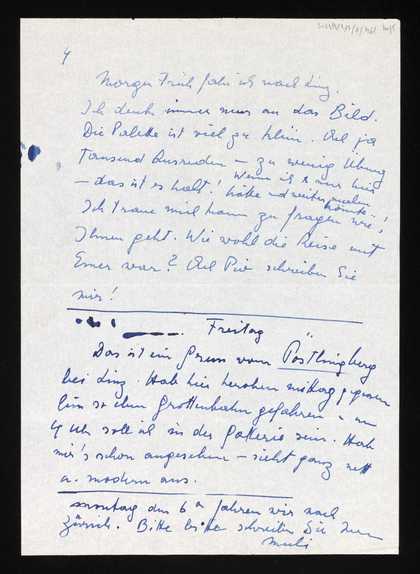 4
Morgen Früh fahr ich nach Linz.
Ich denk immer nur an das Bild.
Die Palette ist viel zu klein. Und ja
Tausend Ausreden – zu wenig Übung
– das ist es halt! Wenn ich nur hier
hätte u. weiter malen könnte!
Ich traue mich kaum zu fragen wie's
Ihnen geht. Wie wohl die Reise mit
war? Und Sie schreiben Sie
mir!
Freitag
Das ist ein Gruss vom Pöstlingberg
bei Linz. Hab hier heroben mittag gegessen
bin so eben Grottenbahn gefahren u. um
4 Uh soll ich in der Gallerie sein. Hab
mir's schon angesehen – sieht ganz nett
u. modern aus.
Montag den 6. fahren wir nach
Zürich. Bitte bitte schreiben Sie